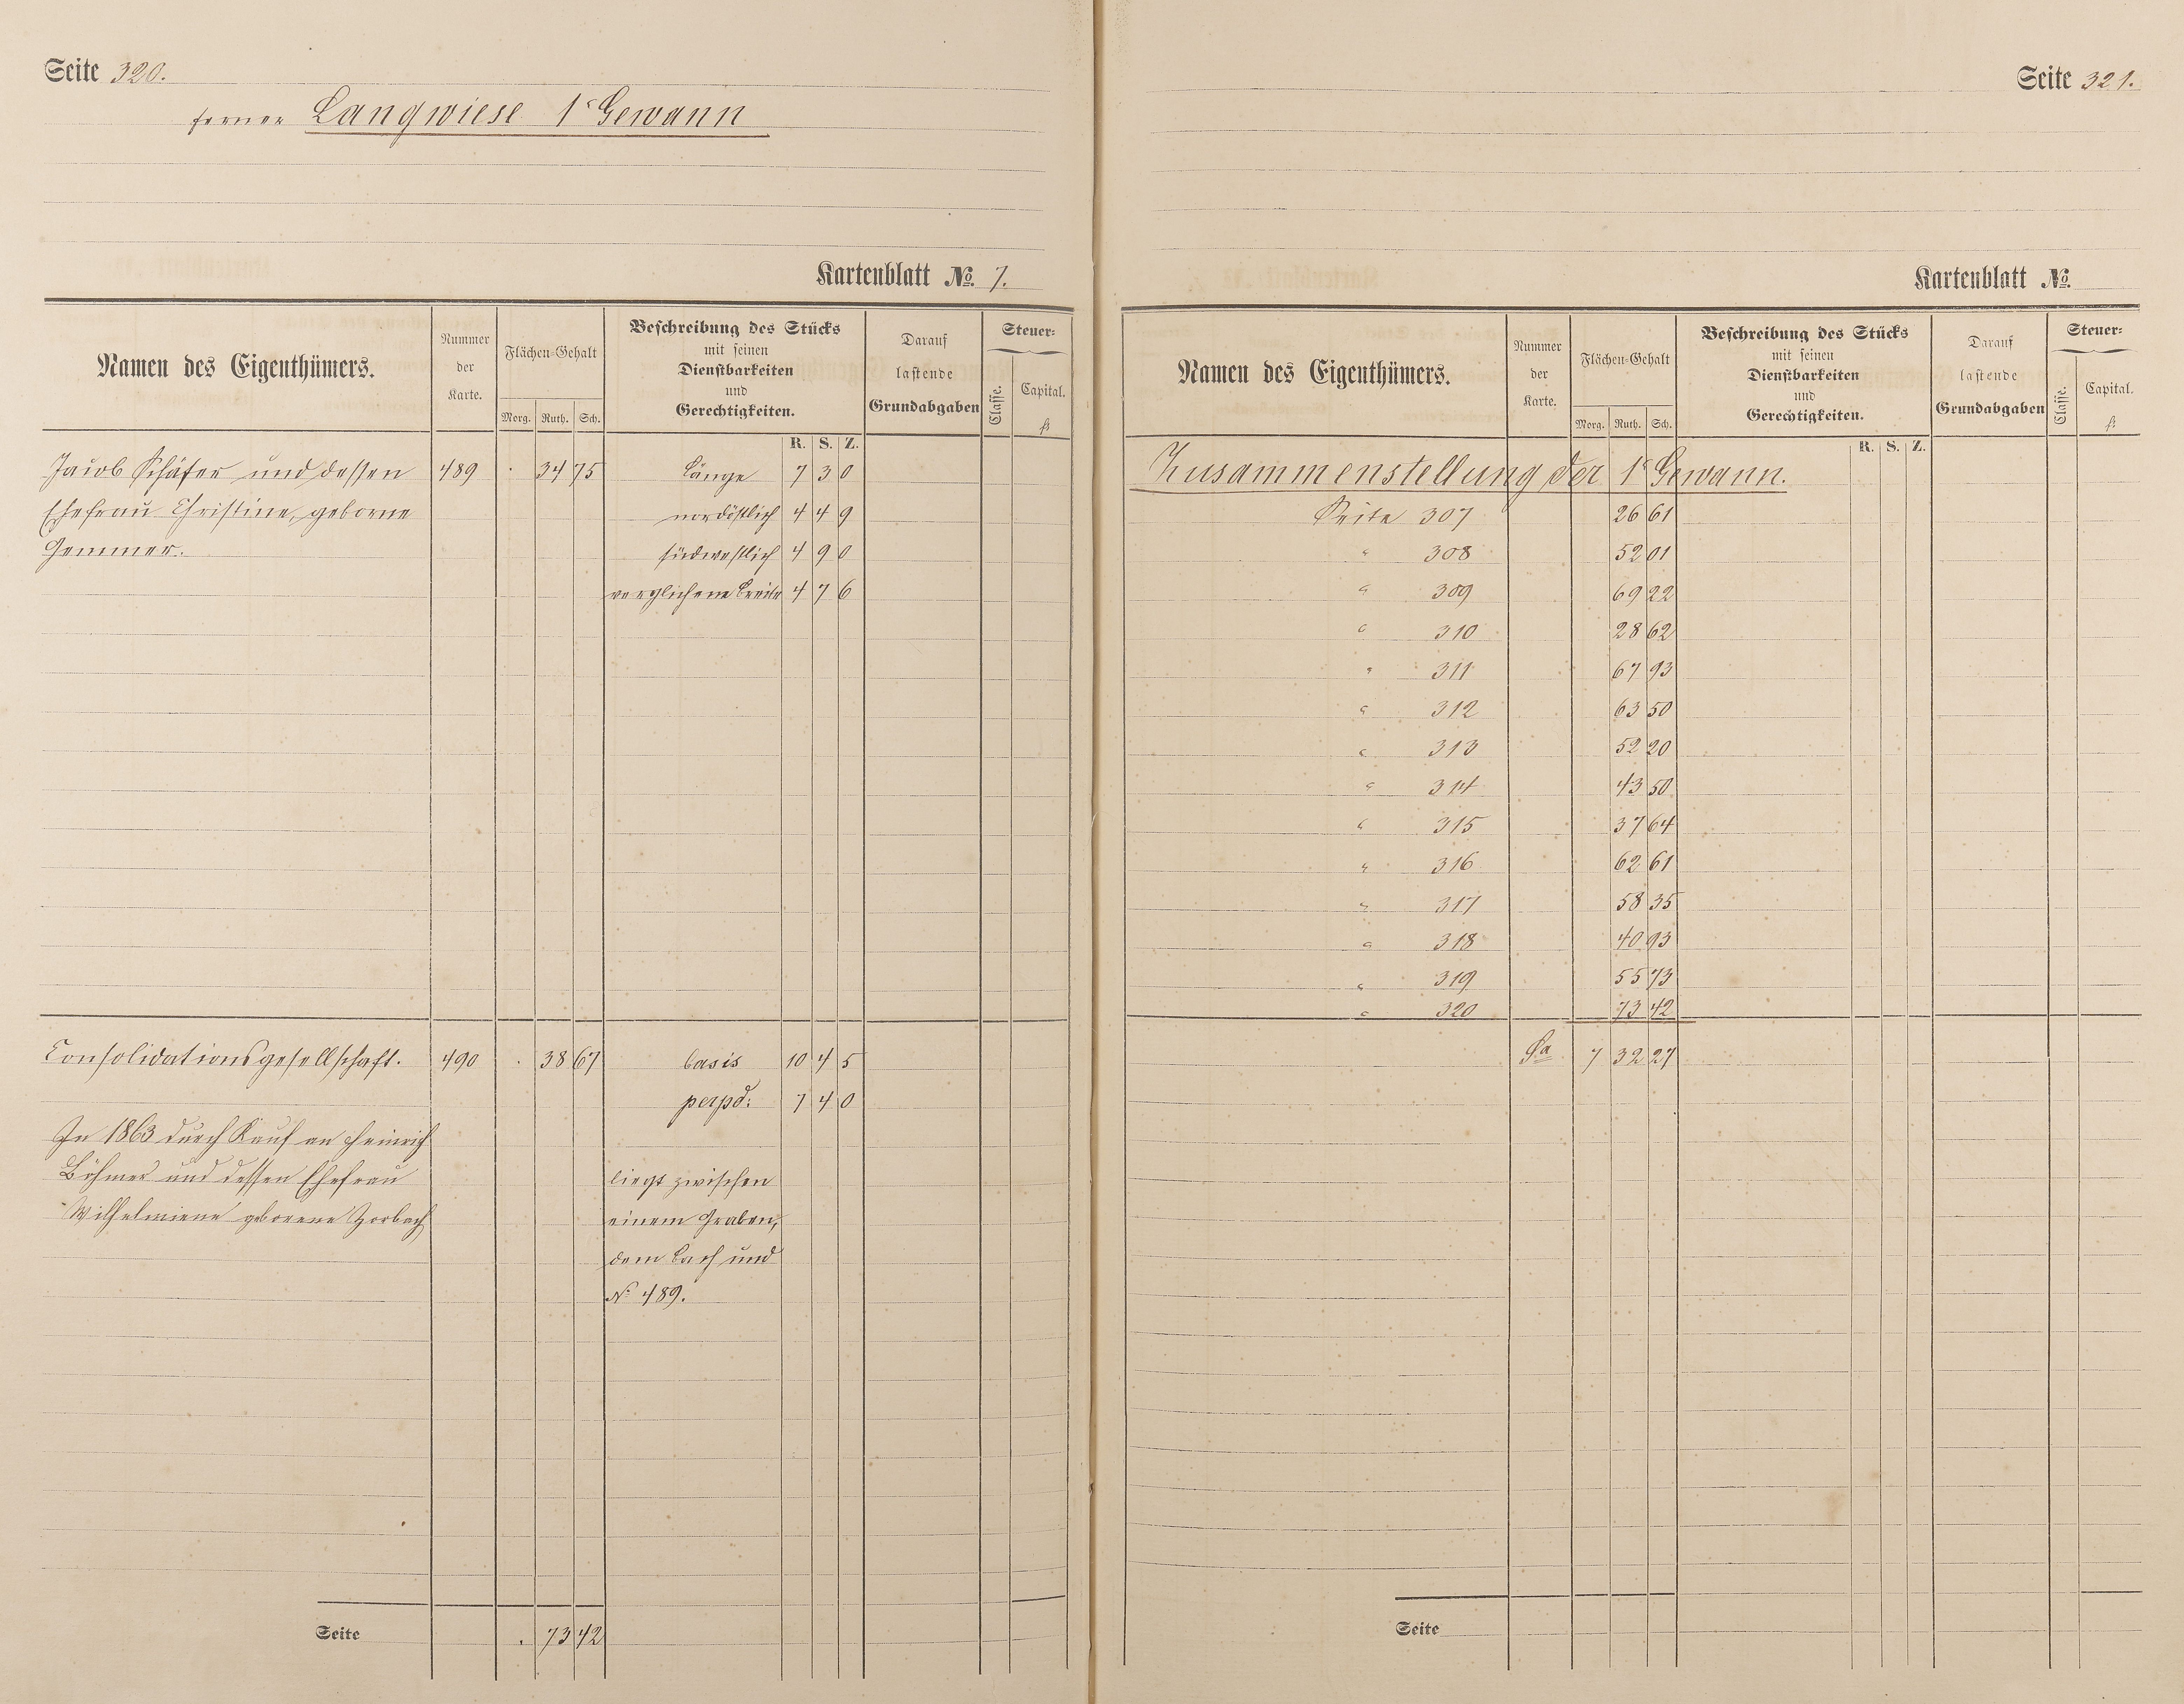 Seite 320.
ferner Langwiese 1ᵉ Gewann
Kartenblatt No. 7.
Namen des Eigenthümers.
Nummer der Karte.
Flächen-Gehalt
Morg. Ruth. Sch.
Beschreibung des Stücks
mit seinen
Dienstbarkeiten
und
Gerechtigkeiten.
Darauf
lastende
Grundabgaben
Steuer-
Classe.
Capital.
fl
R. S. Z.
Jacob Schäfer und dessen 489 . 34 75 Länge 7 3 0
Ehefrau Christine, geborne nordöstlich 4 4 9
Hemmer. südwestlich 4 9 0
verglichene Breite 4 7 6
Consolidationsgesellschaft. 490 . 38 67 basis 10 4 5
perpd: 7 4 0
In 1863 durch Kauf an Heinrich
Böhmer und dessen Ehefrau liegt zwischen
Wilhelmiene geborene Zorbach einem Graben,
dem Bach und
No 489.
Seite . 73 42
Seite 321.
Kartenblatt No.
Namen des Eigenthümers.
Nummer der Karte.
Flächen-Gehalt
Morg. Ruth. Sch.
Beschreibung des Stücks
mit seinen
Dienstbarkeiten
und
Gerechtigkeiten.
Darauf
lastende
Grundabgaben
Steuer-
Classe.
Capital.
fl
R. S. Z.
Zusammenstellung der 1ᵉ Gewann.
Seite 307 26 61
" 308 52 01
" 309 69 22
" 310 28 62
" 311 67 93
" 312 63 50
" 313 52 20
" 314 43 50
" 315 37 64
" 316 62 61
" 317 58 35
" 318 40 93
" 319 55 73
" 320 73 42
Sa 7 32 27
Seite